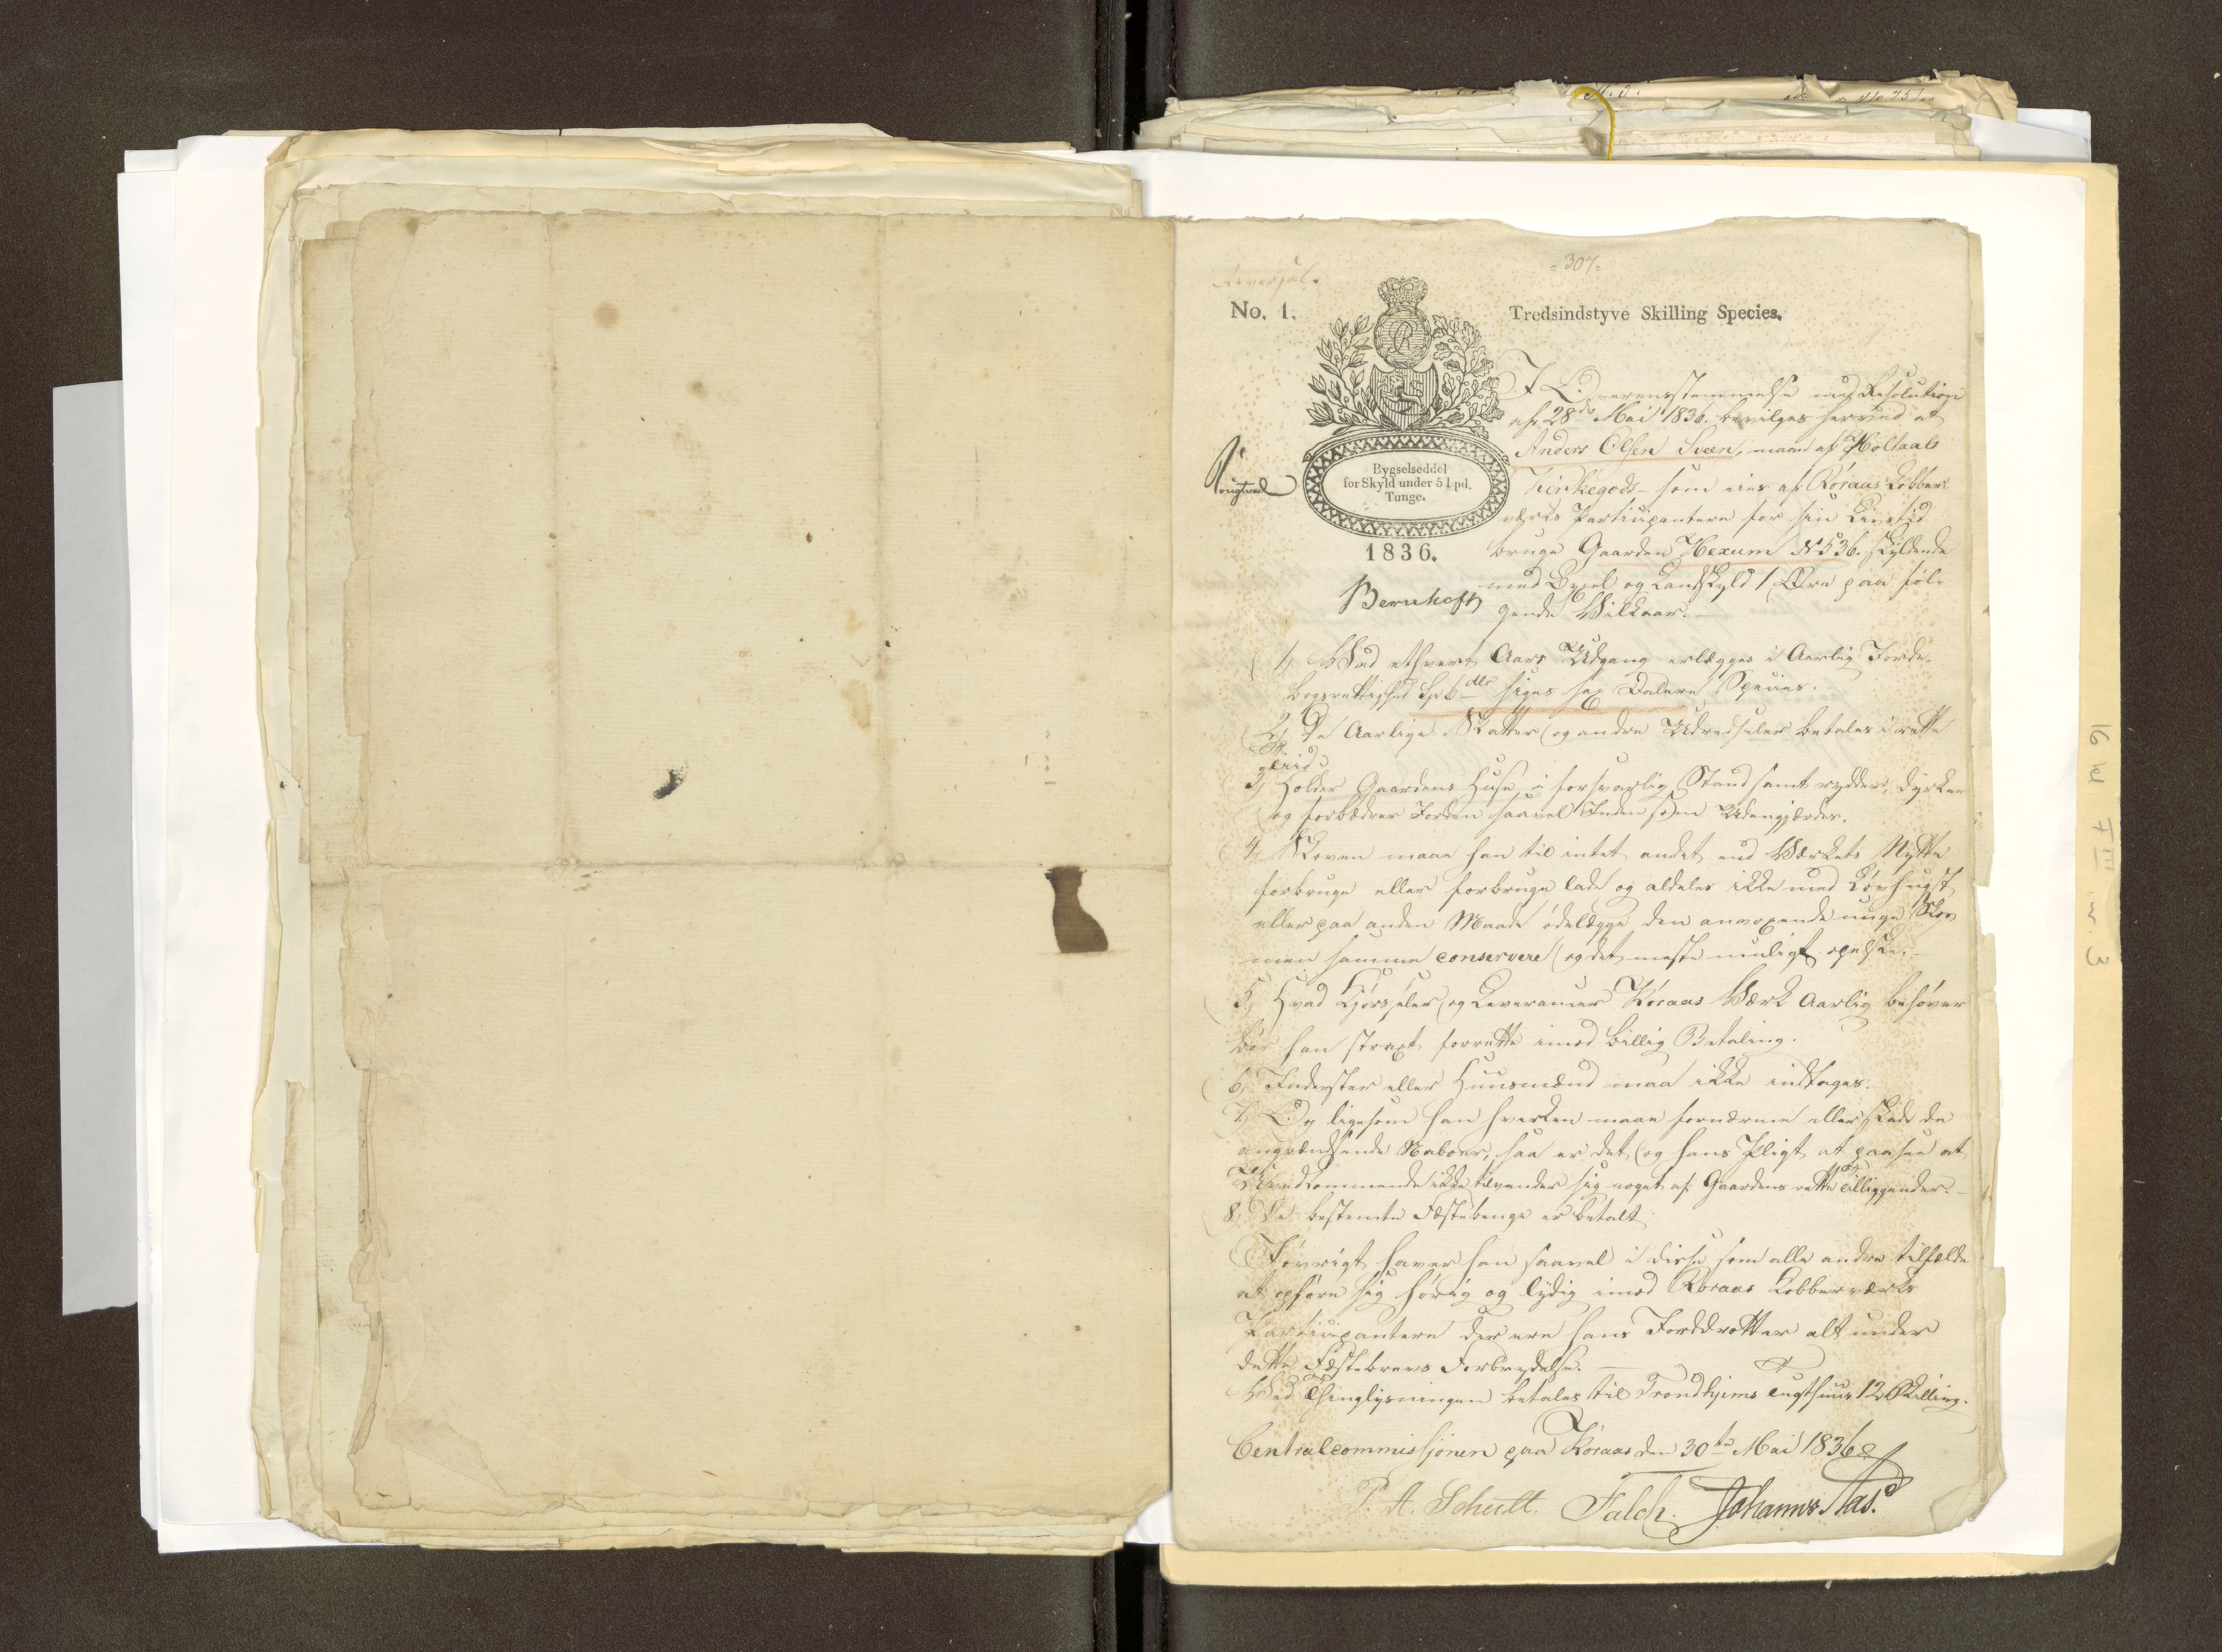 =307=
No. 1.
Tredsindstyve Skilling Species.
I Overensstemmelse med Resolution
af 28de Mai 1836. bevilges herved at
Anders Olsen Sveen, maae af Holtaals
Kirkegods – som eies af Röraas Kobber
værks Participantere for sin Livstid
bruge Gaarden Hexum No 536. skyldende
med Bygsel og Landskyld 1 Øre paa føl-
gende Vilkaar. –
Bygselseddel
for Skyld under 5 l pd.
Tunge.
1836.
Bernhoft
1, Ved ethvert Aars Udgang erlægges i Aarlig Jorde-
bogsrettighed Sp 6 dlr siges sex Dalere Species.
2, De Aarlige Skatter og andre Udredseler betales i rette
Tiid.
3, Holder Gaardens Huse i forsvarlig Stand samt rydder, dyrker
og forbedrer Jorden saavel Inden som Udengjærdes.
4, Skoven maae han til intet andet end Værkets Nytte
forbruge eller forbruge lade og aldeles ikke med Løvhugst
eller paa anden Maade ödelægge den anvoxende unge Skov
men samme conservere og det meste muligt opelske. –
5, Hvad Kjörseler og Leverancer Röraas Værk Aarlig behöver
bör han strax forrette imod billig Betaling.
6, Inderster eller Huusmænd maa ikke indtages.
7, Og ligesom han hverken maae fornærme eller skade de
angrændsende Naboer, saa er det og hans Pligt at paasee at
Uvedkommende ikke tilvender sig noget af Gaardens rette Tilliggender. –
8, De bestemte Fæstebenge er betalt
Iøvrigt haver han saavel i disse som alle andre tilfælde
at opføre sig hörig og lydig imod Röraas Kobberværks
Participantere der ere hans Jorddrotter alt under
dette Fæstebrevs Forbrydelse. –
Ved Thinglysningen betales til Trondhjems Tugthuus 12 Skilling.
Centralcommissjonen paa Röraas den 30te Mai 1836
P. A. Schult. Falch. Johannes Aas.
16 kl 7 III nr. 3